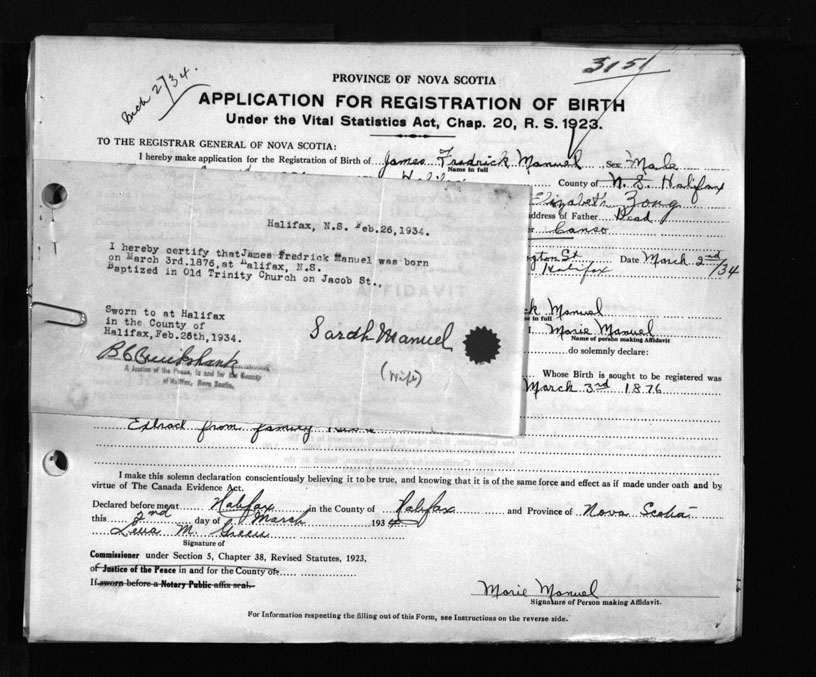 3151
PROVINCE OF NOVA SCOTIA
APPLICATION FOR REGISTRATION OF BIRTH
Under the Vital Statistics Act, Chap. 20, R. S. 1923.
TO THE REGISTRAR GENERAL OF NOVA SCOTIA:
I hereby make application for the Registration of Birth of James Fradrick Manuel Sex Male
Name in full
County of N. S. Halifax
Elizabeth
address of Father Dead
Canso
St Date March 2nd/34
Halifax
Manuel
Marie Manuel
Name of person making Affidavit
do solemnly declare:
Whose Birth is sought to be registered was
March 3rd 1876
Halifax, N.S. Feb.26,1934.
I hereby certify that James Fredrick Manuel was born
on March 3rd.1876,at Halifax, N.S.
Baptized in Old Trinity Church on Jacob St..
Sworn to at Halifax
in the County of
Halifax,Feb.26th,1934.
Sarah Manuel
(Wife)
A Justice of the Peace, in and for the County
of Halifax, Nova Scotia.
Extract from family
I make this solemn declaration conscientiously believing it to be true, and knowing that it is of the same force and effect as if made under oath and by
virtue of The Canada Evidence Act.
Declared before me at Halifax in the County of Halifax and Province of Nova Scotia
this 2nd day of March 1934
M. Green
Signature of
Commissioner under Section 5, Chapter 38, Revised Statutes, 1923,
of Justice of the Peace in and for the County of
If sworn before a Notary Public affix seal.
Marie Manuel
Signature of Person making Affidavit.
For Information respecting the filling out of this Form, see Instructions on the reverse side.